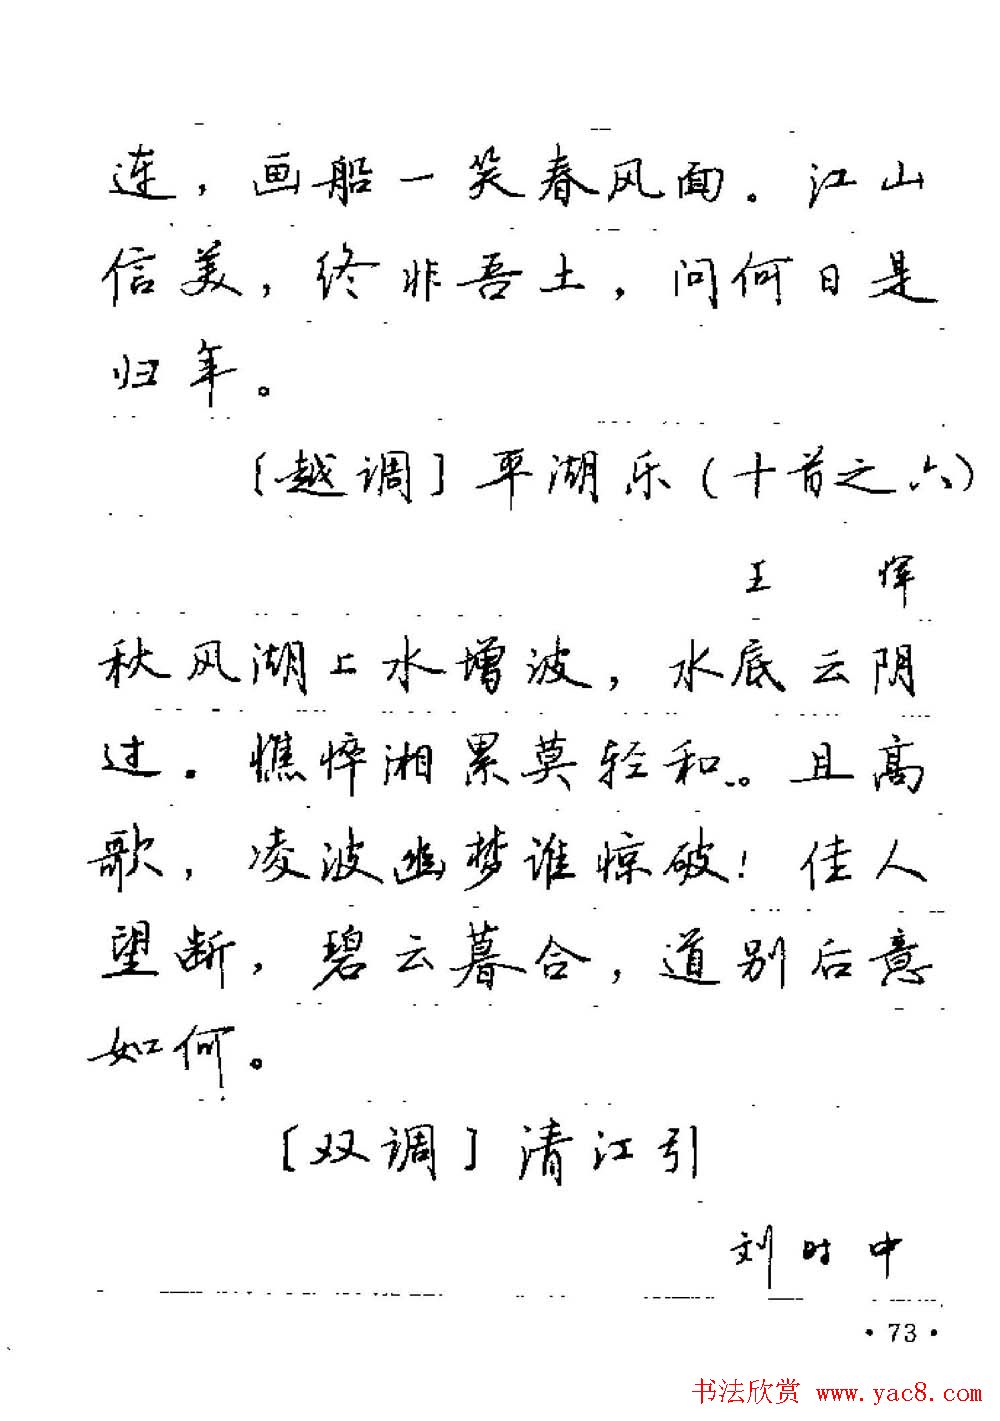 连，画船一笑春风面。江山
信美，终非吾土，问何日是
归年。
［越调］平湖乐（十首之六）
王 恽
秋风湖上水增波，水底云阴
过．憔悴湘累莫轻和。且高
歌，凌波幽梦谁惊破！佳人
望断，碧云暮合，道别后意
如何。
［双调］清江引
刘时中
· 73 ·
书法欣赏 www.yac8.com